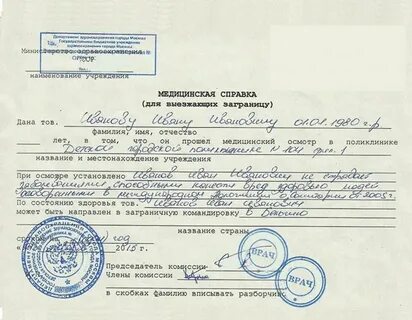 Департамент здравоохранения города Москвы
Государственное бюджетное учреждение
здравоохранения города Москвы
Министерство здравоохранения
наименование учреждения
МЕДИЦИНСКАЯ СПРАВКА
(для выезжающих заграницу)
Дана тов. Иванову Ивану Ивановичу 01.01.1980 г.р
фамилия, имя, отчество
лет, в том, что он прошел медицинский осмотр в поликлинике
Детской городской поликлинике №
название и местонахождение учреждения
При осмотре установлено Иванов Иван Иванович не страдает
заболеваниями, способными нанести вред здоровью людей
от 2005 г.
По состоянию здоровья тов. Иванов Иван Иванович
может быть направлен в заграничную командировку в
название страны
год
2015 г.
Председатель комиссии
Члены комиссии
ВРАЧ
ВРАЧ
в скобках фамилию вписывать разборчиво